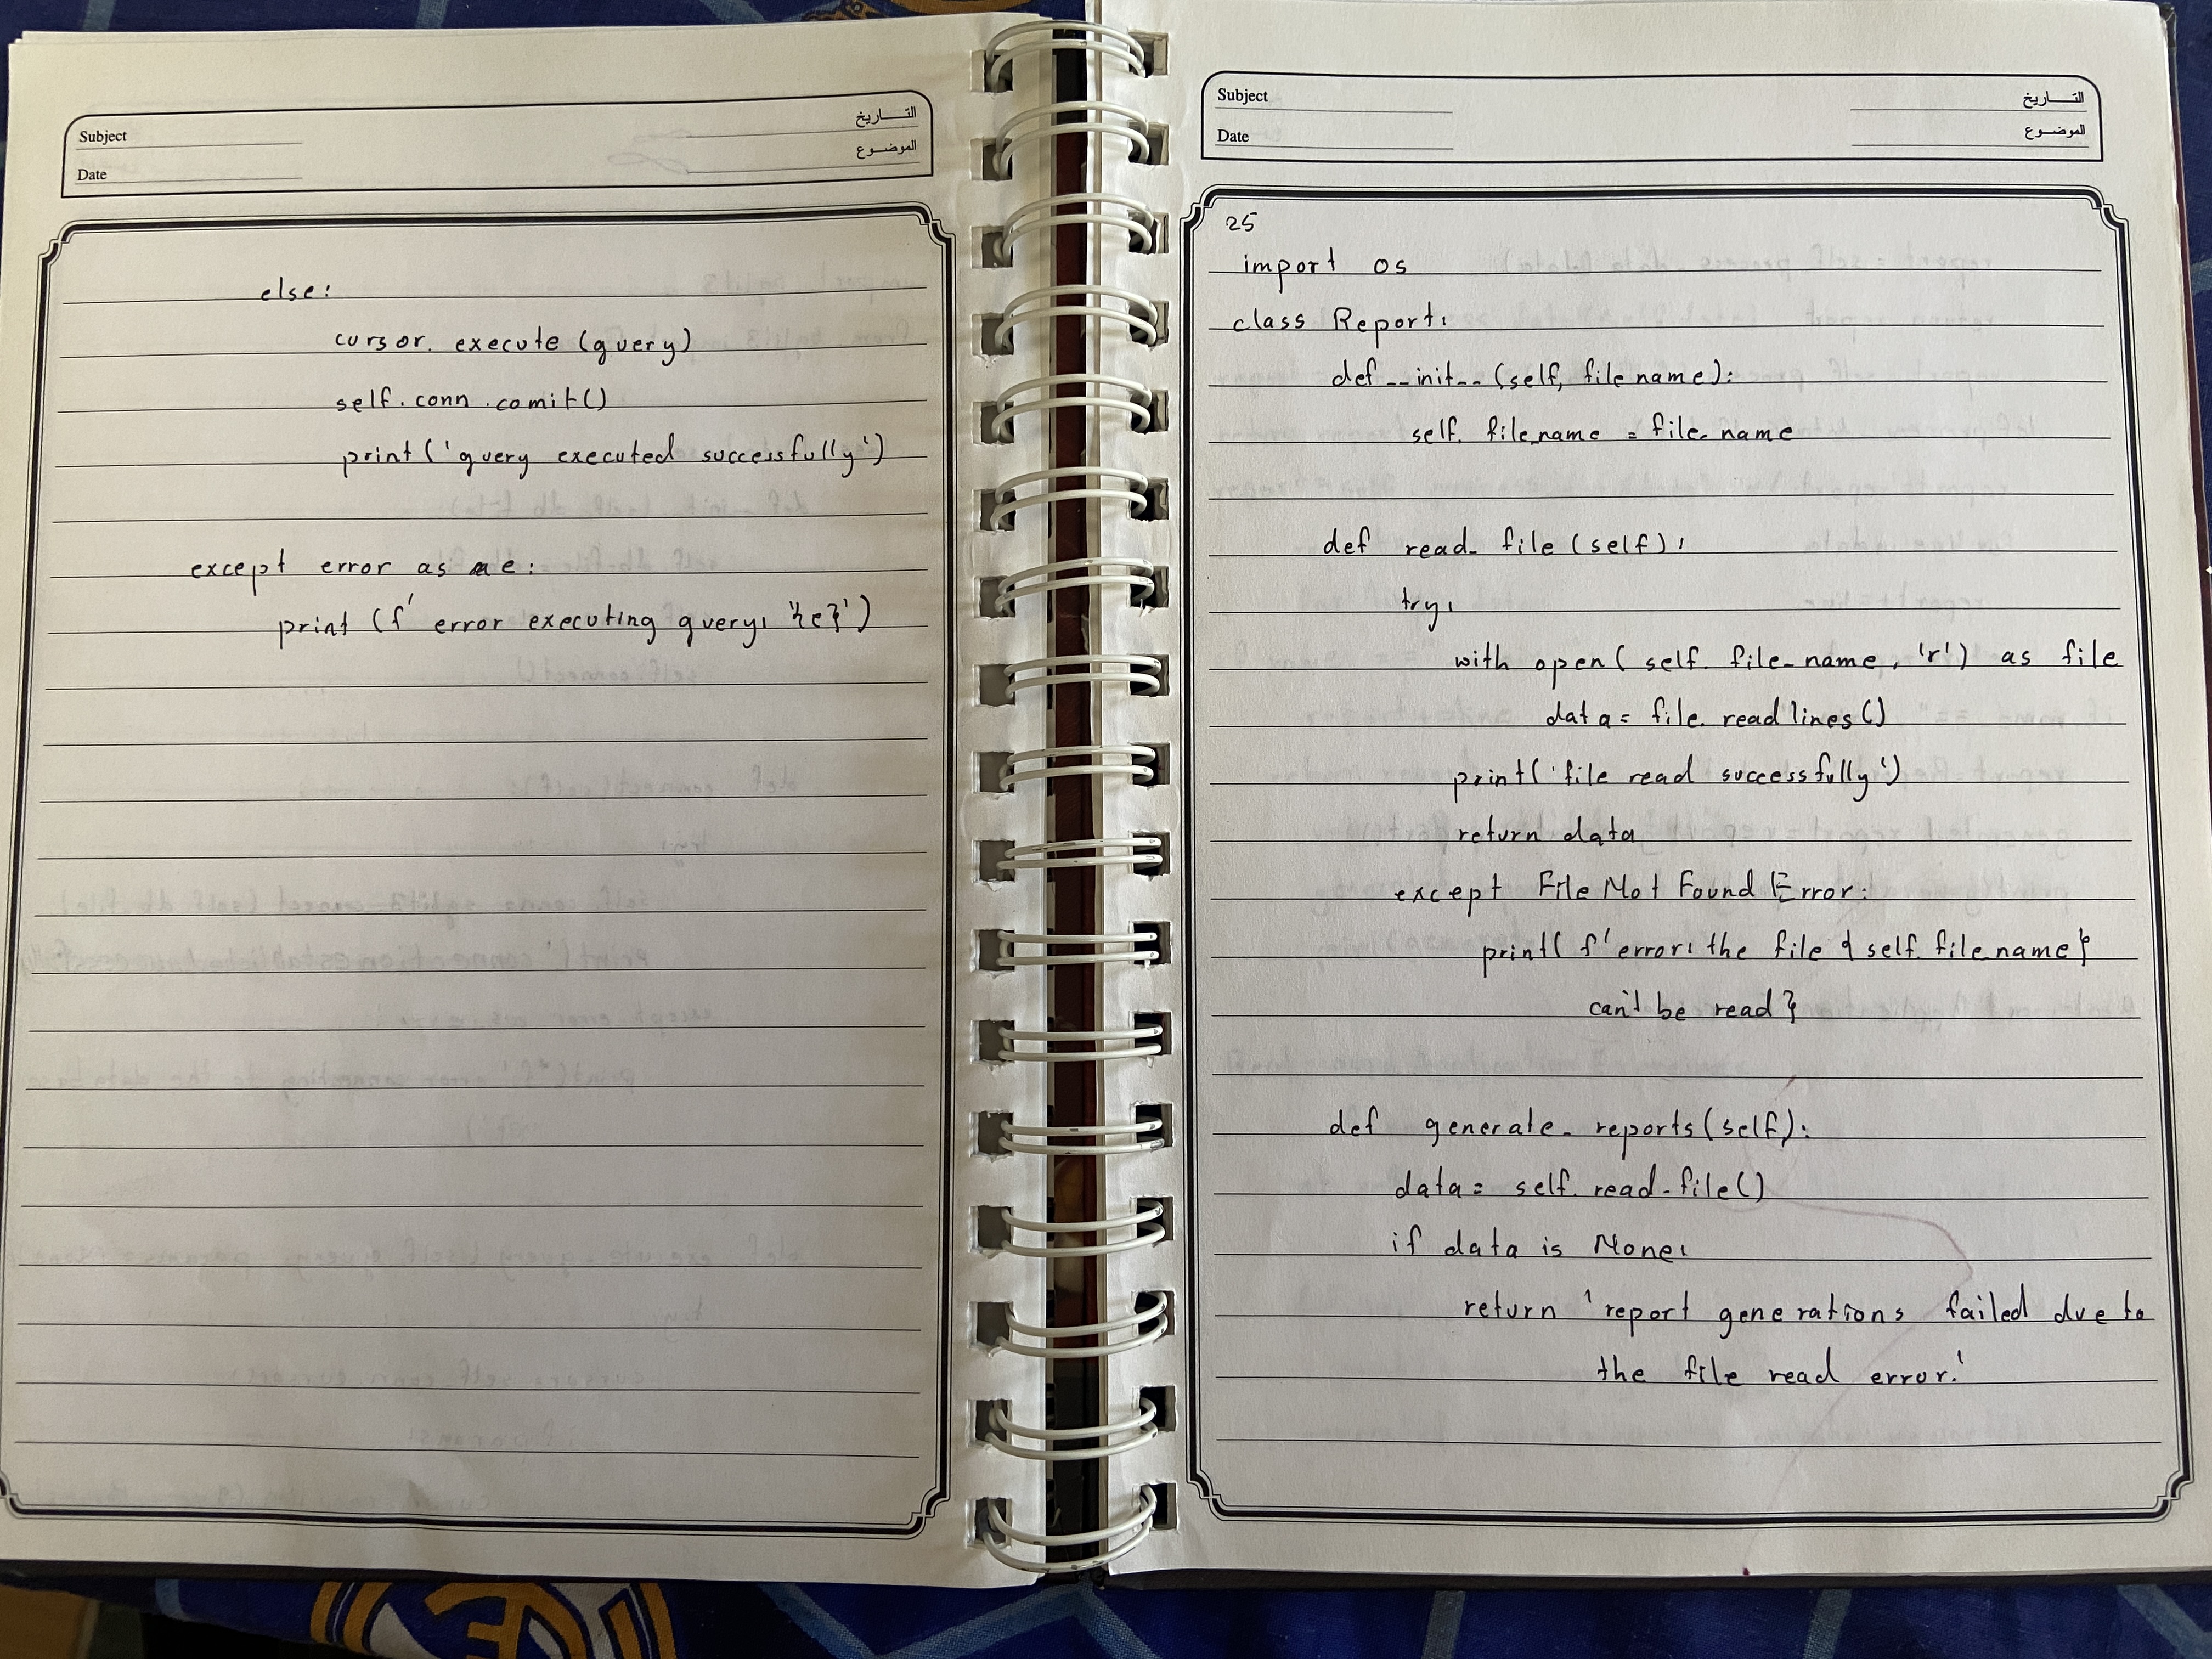 Subject التـــاريخ
Date الموضـوع
else:
cursor. execute (query)
self. conn. comit()
print ('query executed successfully')
except error as e:
print (f' error executing query: {e}')
Subject التـــاريخ
Date الموضـوع
25
import os
class Report:
def __init__ (self, file name):
self. file_name = file_name
def read_ file (self):
try:
with open( self. file_name, 'r') as file
data = file. readlines()
print( 'file read successfully')
return data
except File Not Found Error:
print( f' error: the file { self. file name}
can't be read}
def generate_ reports (self):
data = self. read_file()
if data is None:
return 'report generations failed due to
the file read error.'